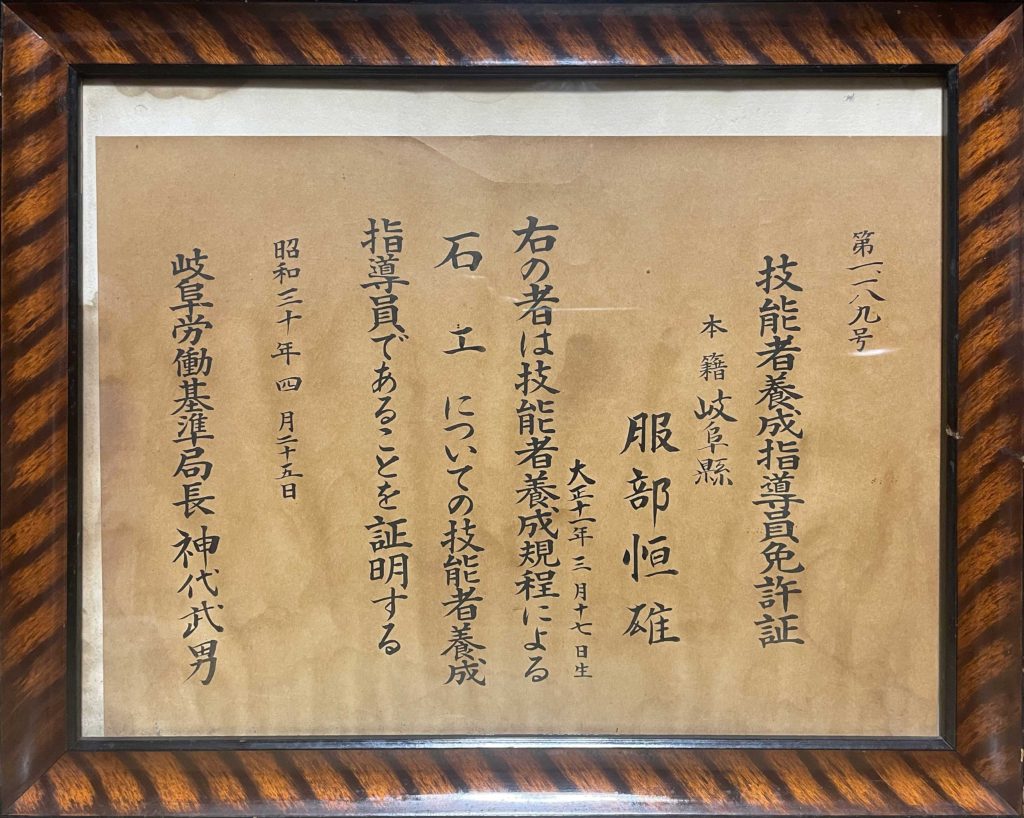 第一、一八九号
技能者養成指導員免許証
本籍岐阜縣
服部恒雄
大正十一年三月十七日生
右の者は技能者養成規程による
石工についての技能者養成
指導員であることを証明する
昭和三十年四月二十五日
岐阜労働基準局長神代武男